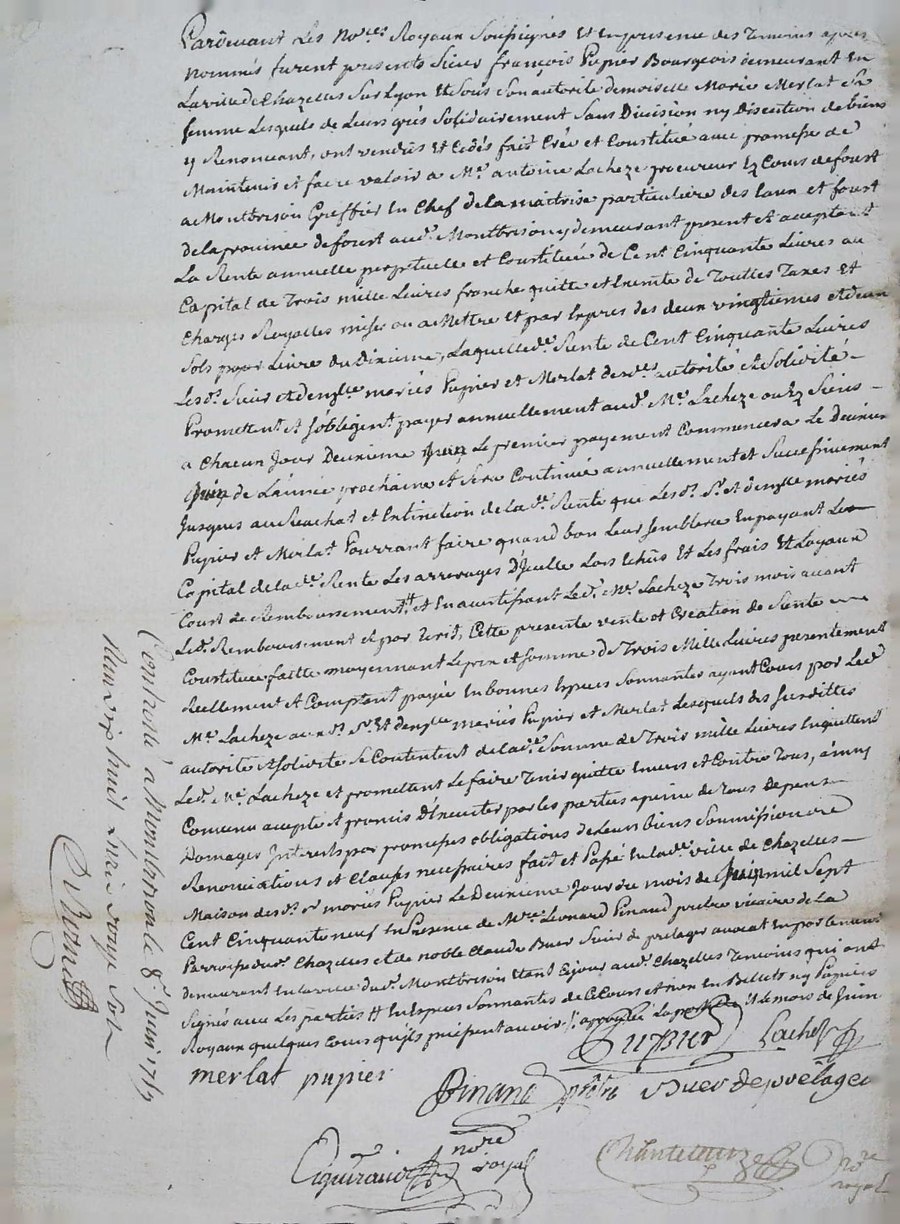 Pardevant Les No.res Royaux Soussignés Et en presence des Temoins apres
Nommés furent presents Sieur françois Pupier Bourgeois demeurant En
La ville de Chazelles Sur Lyon Et Sous Son autorité demoiselle Marie Merlat Sa
femme Lesquels de Leurs grés Solidairement Sans Division ny Discution de biens
y Renonçant, ont vendus Et Cedés fait Créé et Constitué avec promesse de
Maintenir et faire valoir a Me. antoine Lacheze procureur Ez Cours de forest
a Montbrison Greffier En Chef de la maitrise particuliere des Eaux et forest
de la province de forest aud. Montbrison y demeurant present et acceptant
La Rente annuelle perpetuelle et Constituée de Cent Cinquante Livres au
Capital de Trois mille Livres franche quitte et Exempte de Touttes Taxes Et
Charges Royalles mises ou a Mettre Et par Expres des deux vingtiemes et deux
Sols pour Livre du Dixieme, Laquelle d.e Rente de Cent Cinquante Livres
Lesd. Sieur et d.eng.lle mariés Pupier et Merlat desd. autorité et Solidité
Promettent et s'obligent payer annuellement aud. Me. Lacheze ou Ez Siens
a Chacun Jour Deuxieme Juin Le premier payement Commencera Le Deuxieme
Juin de L'année prochaine et Sera Continué annuellement et Successivement
Jusques au Reachat et Extinction de la d.e Rente que Lesd. Sr. et d.eng.lle mariés
Pupier et Merlat Pourront faire quand bon Leur Semblera En payant Le
Capital de la d.e Rente Les arrerages D'Jcelle Lors Echûs Et Les frais Et Loyaux
Couts de Remboursement, et En avertissant Led. Me. Lacheze Trois mois avant
Led. Remboursement et par Ecrit, Cette presente vente et Création de Rente
Constituée faitte moyennant Le prix et Somme de Trois Mille Livres presentement
Reellement et Comptant payée En bonnes Especes Sonnantes ayant Cours par Led.
Me. Lacheze auxd. Sr. Et d.eng.lle mariés Pupier et Merlat Lesquels des Susdittes
autorité et Solidité Se Contentent de la d.e Somme de Trois mille Livres En quittent
Led. Me. Lacheze et promettent Le faire Tenir quitte Envers et Contre Tous, ainsy
Convenu accepté et promis D'Executer par les parties a peine de Tous Depens
Domages Interets par promesses obligations de Leurs Biens Soumissions
Renonciations et Clauses necessaires fait et Passé En lad. ville de Chazelles
Maison desd. Sr. mariés Pupier Le Deuxieme Jour du mois de Juin mil Sept
Cent Cinquante neuf En Presence de Mre. Leonard Pinand pretre vicaire de La
Parroisse dud. Chazelles et de noble Claude Buer Sieur de prelager avocat En parlement
demeurant En la ville dud. Montbrison Etant Ejour aud. Chazelles Temoins qui ont
Signés avec Les parties Et En Especes Sonnantes de Ce Cours et non En Billets ny Papiers
Royaux quelques Cours qu'ils puissent avoir. approuvés Le mois de Juin
Pupier Lacheze
merlat pupier
Pinand pretre Buer de prelager
nore royal
Chantelauze no.re royal
Controlé à Montbrison le 8e Juin 1759